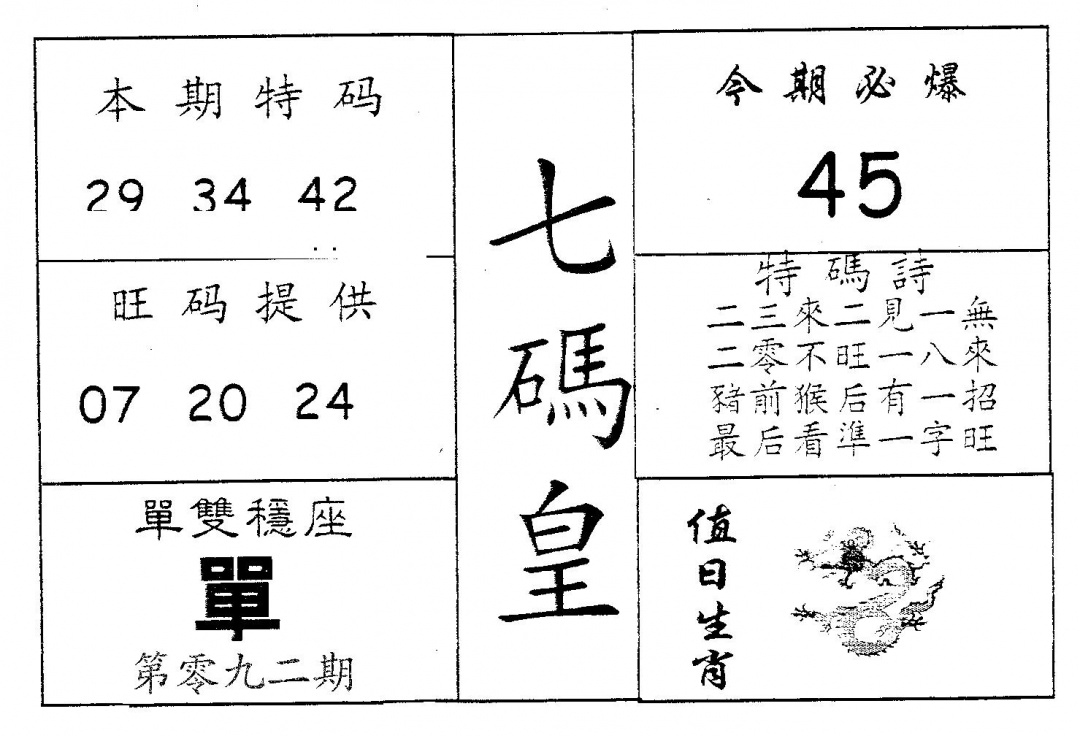 本期特码
29 34 42
旺码提供
07 20 24
單雙穩座
單
第零九二期
七碼皇
今期必爆
45
特碼詩
二三來二見一無
二零不旺一八來
豬前猴后有一招
最后看準一字旺
值日生肖